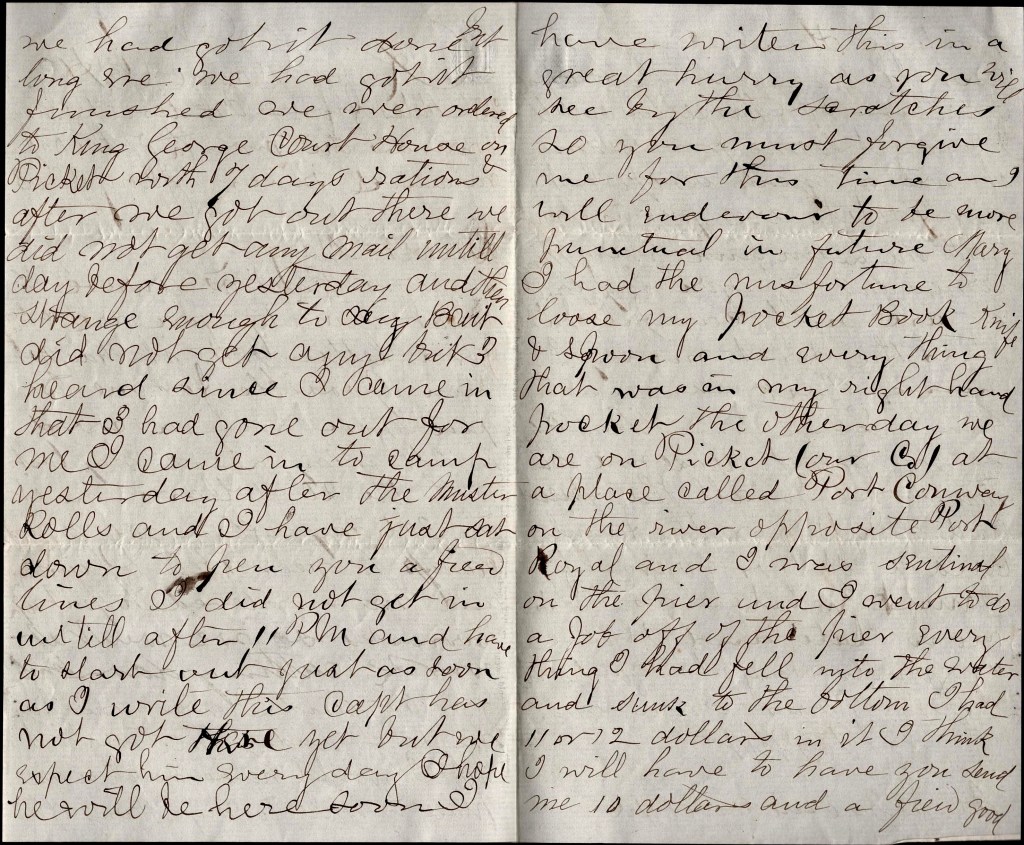 we had got it done Not
long ere we had got it
finnished we wer ordered
to King George Court House on
Picket with 7 days rations &
after we got out there we
did not get any mail untill
day before yesterday and then
strange enough to say
did not get any but I
heard since I came in
that 3 had gone out for
me I came in to camp
yesterday after the Muster
Rolls and I have just sat
down to pen you a few
lines I did not get in
untill after 11 PM and have
to start out just as soon
as I write this Capt has
not got yet but we
expect him every day I hope
he will be here soon I
have writen this in a
great hurry as you will
see by the scratches
so you must forgive
me for this time an I
will endevour to be more
punctual in future Mary
I had the misfortune to
loose my Pocket Book Knife
& spoon and every thing
that was in my right hand
pocket the other day we
are on Picket (our Co) at
a place called Port Conway
on the river opposite Port
Royal and I was sentinal
on the pier and I went to do
a job off of the pier every
thing I had fell into the water
and sunk to the bottom I had
11 or 12 dollars in it I think
I will have to have you send
me 10 dollars and a few good